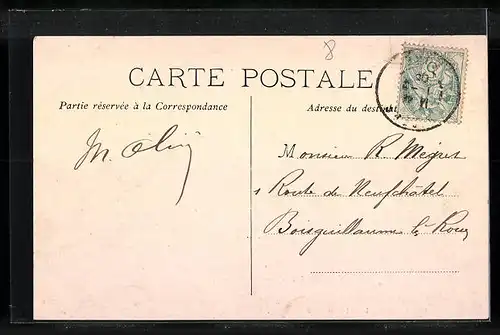 8
CARTE POSTALE
Partie réservée à la Correspondance
Adresse du destinat
M.
Monsieur R. Mégret
1 Route de Neufchâtel
Boisguillaume lè Rouen